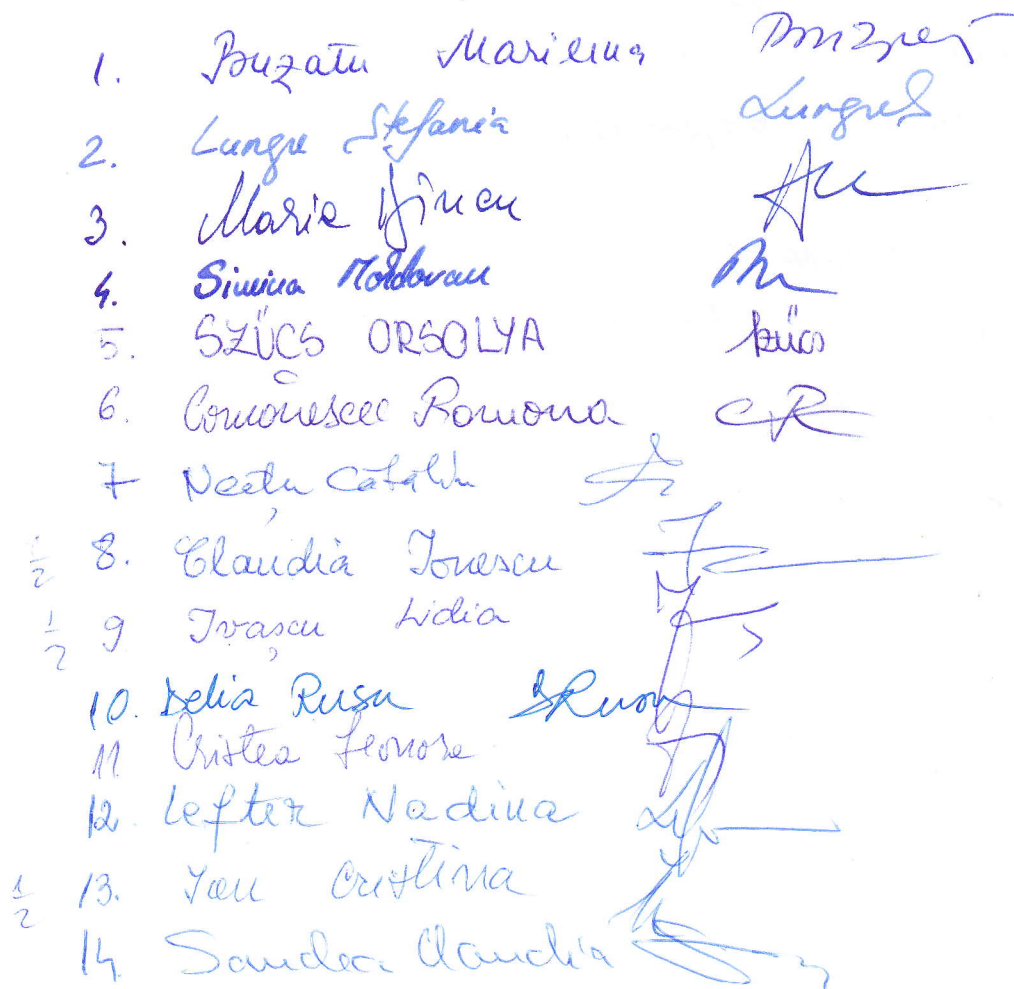 1. Buzatu Marilena
2. Lungu Ștefania LunguS
3. Maria Dincu
4. Simina Moldovan
5. SZŰCS ORSOLYA Szűcs
6. Comănescu Ramona CR
7 Neațu Cătălin
1/2 8. Claudia Ionescu
1/2 9 Ivașcu Lidia
10. Delia Rusu DRusu
11 Cristea Leonora
12. Lefter Nadina
1/2 13. Ion Cristina
14 Sandea Claudia